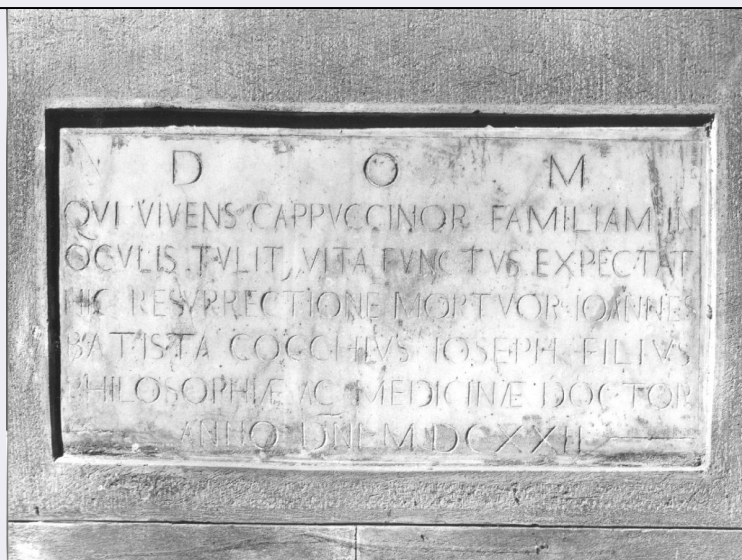 D O M
QVI VIVENS CAPPVCCINOR FAMILIAM IN
OCVLIS TVLIT, VITA FVNCTVS EXPECTAT
HIC RESVRRECTIONE MORTVOR IOANNES
BATISTA COCCHIVS IOSEPH FILIVS
PHILOSOPHIÆ AC MEDICINÆ DOCTOR
ANNO DN̄I M DCXXII